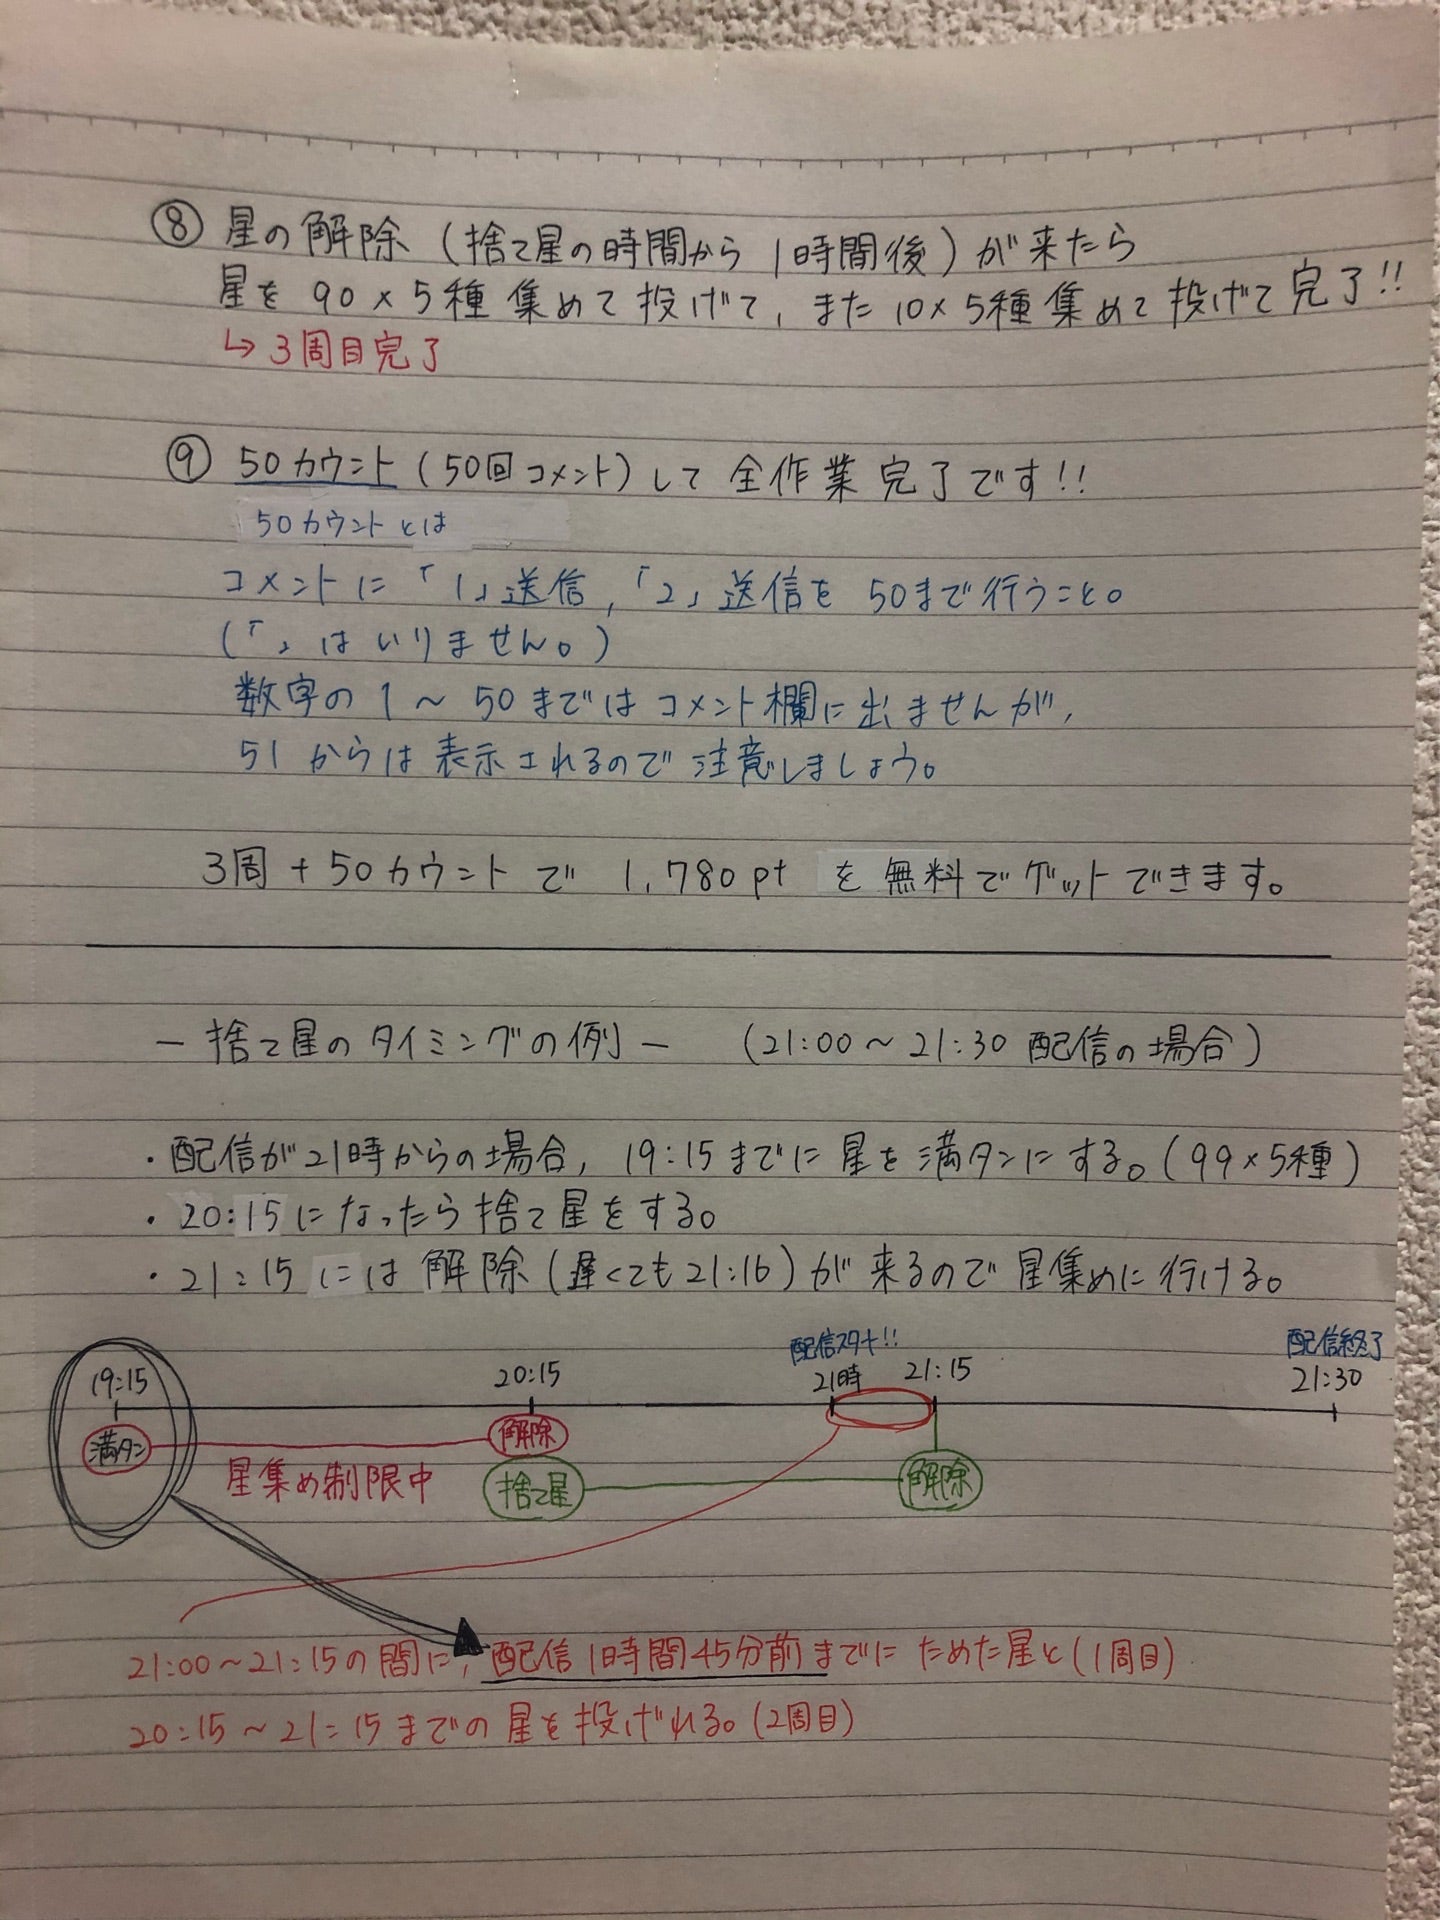 ⑧ 星の解除 (捨て星の時間から 1時間後) が来たら
星を 90×5種 集めて 投げて, また 10×5種 集めて 投げて 完了!!
↳ 3周目完了
⑨ 50カウント (50回コメント) して 全作業 完了です!!
50カウントとは
コメントに「1」送信, 「2」送信を 50まで行うこと。
(「」はいりません。)
数字の 1 ~ 50までは コメント欄に出ませんが,
51 からは 表示されるので 注意しましょう。
3周 + 50カウントで 1,780pt を無料でゲットできます。
- 捨て星の タイミングの例 - (21:00 ~ 21:30 配信の場合)
・配信が21時からの場合, 19:15 までに 星を 満タンにする。(99×5種)
・20:15 になったら 捨て星をする。
・21:15 には 解除 (遅くても 21:16) が来るので 星集めに行ける。
配信スタート!! 配信終了
19:15 20:15 21時 21:15 21:30
満タン 解除
星集め制限中 捨て星 解除
21:00~21:15の間に, 配信1時間45分前までに ためた星と(1周目)
20:15 ~ 21:15までの 星を投げれる。(2周目)